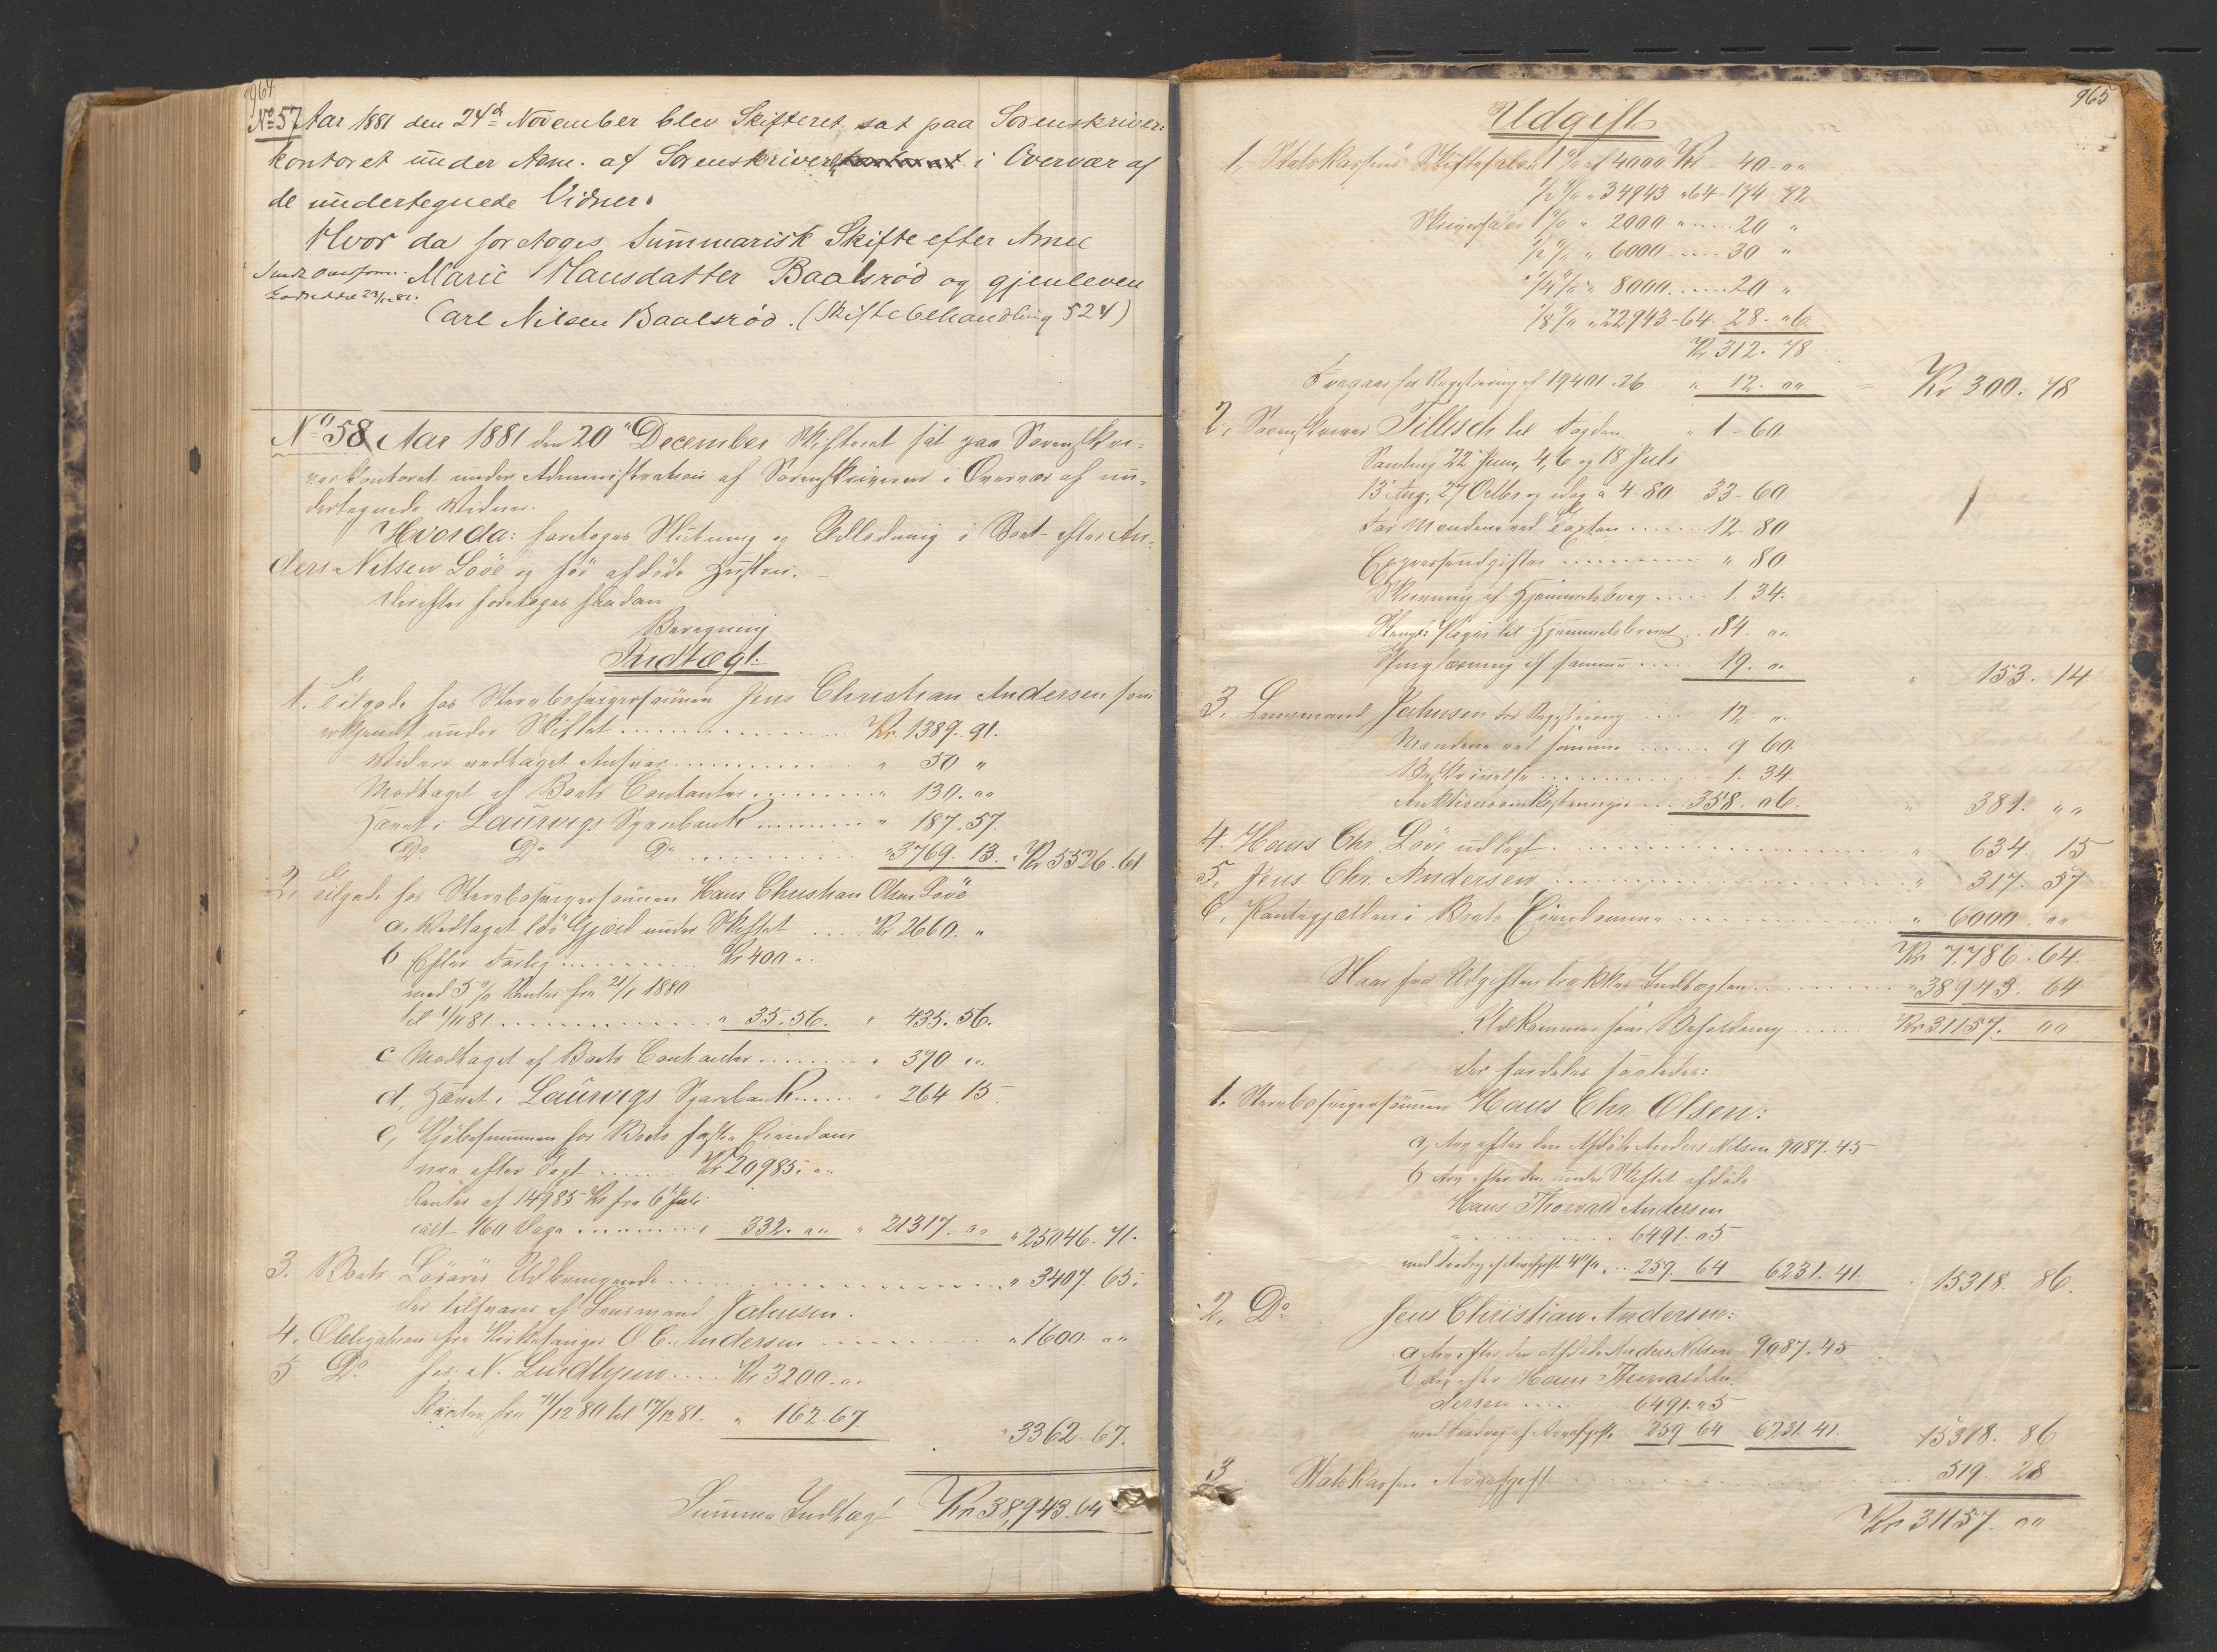 964
No 57 Aar 1881 den 24de November blev Skifteret sat paa Sorenskriver=
kontoret under Adm. af Sorenskriveren i Overvær af
de undertegnede Vidner.
Hvor da foretoges Summarisk Skifte efter Anne
Marie Hansdatter Baalsrød og gjenleven
Carl Nilsen Baalsrød. (Skiftebehandling 524)
No 58 Aar 1881 den 20 December Skifteret sat paa Sorenskri-
verkontoret under Administration af Sorenskriveren i Overvær af un-
dertegnede Vidner.
Hvorda: foretoges Slutning og Udlodning i Boet efter An-
ders Nilsen Løve og før afdøde Hustru.
Derefter foretoges saadan
Beregning
Indtægt:
1. Tilgode hos Stervbosørgersønnen Jens Christian Andersen som
erkjendt under Skiftet Kr. 1389. 91.
Videre vedtaget Ansvar " 50 "
Modtaget af Boets Contanter " 130. "
Hævet i Laurvigs Sparebank " 187. 57.
Do Do Do " 3769. 13. " Kr 5526. 61
2, Tilgode hos Stervbosørgersønnen Hans Christian Olsen Løve
a, Vedtaget løs Gjæld under Skiftet Kr 2660. "
b Efter Forlig Kr 400 "
med 5 % Renter fra 21/1 1880
til 1/11 81 " 35. 56. " 435. 56.
c Modtaget af Boets Contanter " 370 "
d, Hævet i Laurvigs Sparebank " 264 15
e, Kjøbesummen for Boets faste Eiendom
nu efter Taxt Kr 20985. "
Renter af 14985 Kr fra 6 Juli
ialt 160 Dage 332. " " 21317. " " 25046. 71.
3. Boets Løsøres Udbringende " 3407. 65.
der tilsvares af Lensmand Jahnsen.
4. Obligation fra Kirkesanger O. C. Andersen " 1600 "
5 Do fra N. Lindhjem Kr 3200. "
Renter fra 11/12 80 til 17/12 81. " 162. 67.
" 3362. 67.
Summa Indtægt Kr 38,943. 64
965
Udgift
1. Statskassens Skiftesalær 1 % af 4000 Kr 40 - "
1/2 % " 34943 " 64 - 174 - 72
Skriversalær 1 % " 2000 " 20 "
1/2 % " 6000 30 "
1/4 % " 8000 20 "
1/8 % " 22943 - 64. 28 - 06
Kr 312. 78
Fragaar for Registrering af 19401. 26 " 12. " = Kr 300. 78
2, Sorenskriver Tillisch til Dagden " 1 - 60
Samling 22 Juni, 4, 6 og 18 Juli
13 Aug, 27 Octbr og idag a 4. 80 33 - 60
For Mændene ved Taxten 12. 80
Expressudgifter " 80
Skrivning af Hjemmelsbrev 1. 34.
Stempl. Papir til Hjemmelsbrevet 84. "
Thinglæsning af samme 19. " " 153. 14
3, Lensmand Jahnsen for Registrering 12 "
Mændene ved samme 9 60.
Beskrivelse 1. 34
Auktionsomkostninger 358. 06. " 381. "
4. Hans Chr. Løve udlagt " 634 15
5, Jens Chr. Andersen " 317. 57
6, Pantegjælden i Boets Eiendomme " 6000 "
Kr 7.786. 64.
Naar fra Udgiften trækkes Indtægten " 38943. 64
Udkommer som Beholdning Kr 31157. 00
der fordeles saaledes:
1. Stervbosørgersønnen Hans Chr. Olsen:
a, Arv efter den Afdøde Anders Nilsen 9087. 45
b Arv efter den under Skiftet afdøde
Hans Thorvald Andersen
6491. 05
med Fradrag af Arveafgift 4 % 259. 64 6231. 41. 15318. 86.
2, Do Jens Christian Andersen:
a Arv efter den Afdøde Anders Nilsen 9087. 45
b Arv efter Hans Thorvald An-
dersen 6491. 05
med Fradrag af Arveafgift 259 64 6231. 41. 15318. 86
3 Statskassen Arveafgift 519. 28
Kr 31157. 00